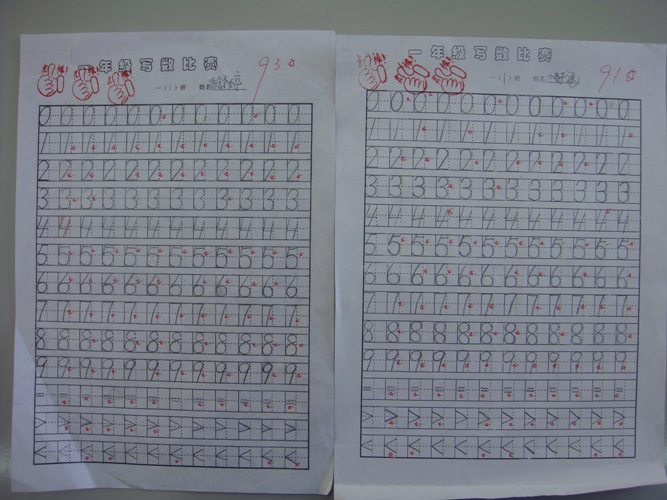 一年级写数比赛
93
一(1)班 姓名
0 0 0 0 0 0 0 0 0 0 0 0
1 1 1 1 1 1 1 1 1 1 1 1
2 2 2 2 2 2 2 2 2 2 2 2
3 3 3 3 3 3 3 3 3 3 3 3
4 4 4 4 4 4 4 4 4 4 4 4
5 5 5 5 5 5 5 5 5 5 5 5
6 6 6 6 6 6 6 6 6 6 6 6
7 7 7 7 7 7 7 7 7 7 7 7
8 8 8 8 8 8 8 8 8 8 8 8
9 9 9 9 9 9 9 9 9 9 9 9
= = = = = = = = = = = =
> > > > > > > > > > > >
< < < < < < < < < < < <
一年级写数比赛
91
一(1)班 姓名
0 0 0 0 0 0 0 0 0 0 0 0
1 1 1 1 1 1 1 1 1 1 1 1
2 2 2 2 2 2 2 2 2 2 2 2
3 3 3 3 3 3 3 3 3 3 3 3
4 4 4 4 4 4 4 4 4 4 4 4
5 5 5 5 5 5 5 5 5 5 5 5
6 6 6 6 6 6 6 6 6 6 6 6
7 7 7 7 7 7 7 7 7 7 7 7
8 8 8 8 8 8 8 8 8 8 8 8
9 9 9 9 9 9 9 9 9 9 9 9
= = = = = = = = = = = =
> > > > > > > > > > > >
< < < < < < < < < < < <